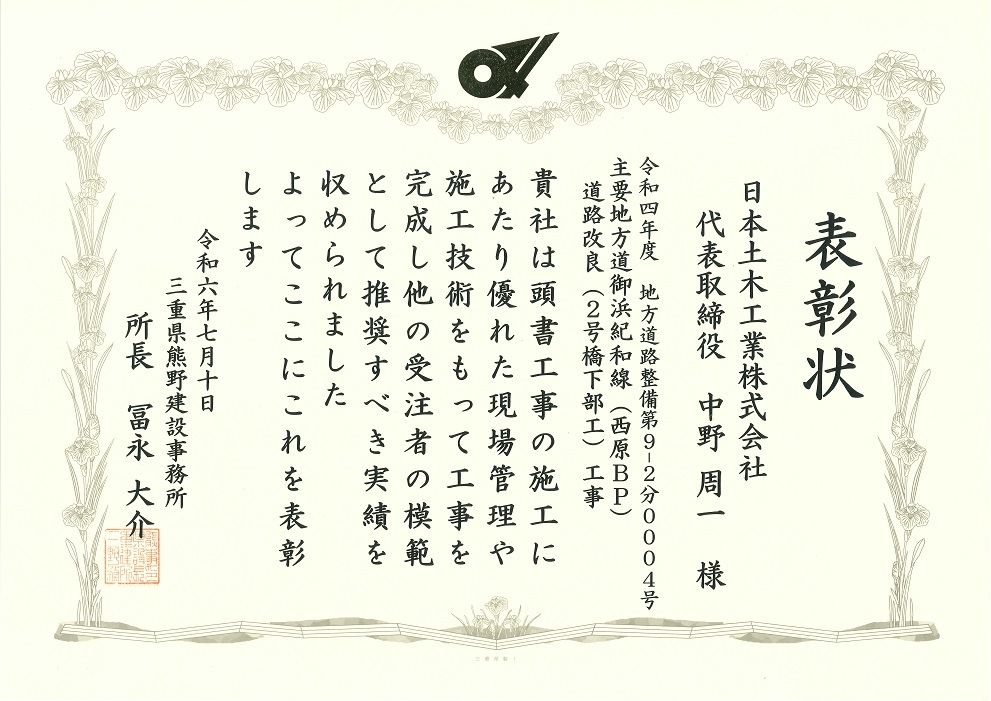 表彰状
日本土木工業株式会社
代表取締役　中野 周一　様
令和四年度　地方道路整備第９−２分０００４号
主要地方道御浜紀和線（西原ＢＰ）
道路改良（２号橋下部工）工事
貴社は頭書工事の施工に
あたり優れた現場管理や
施工技術をもって工事を
完成し他の受注者の模範
として推奨すべき実績を
収められました
よってここにこれを表彰
します
令和六年七月十日
三重県熊野建設事務所
所長　冨永 大介